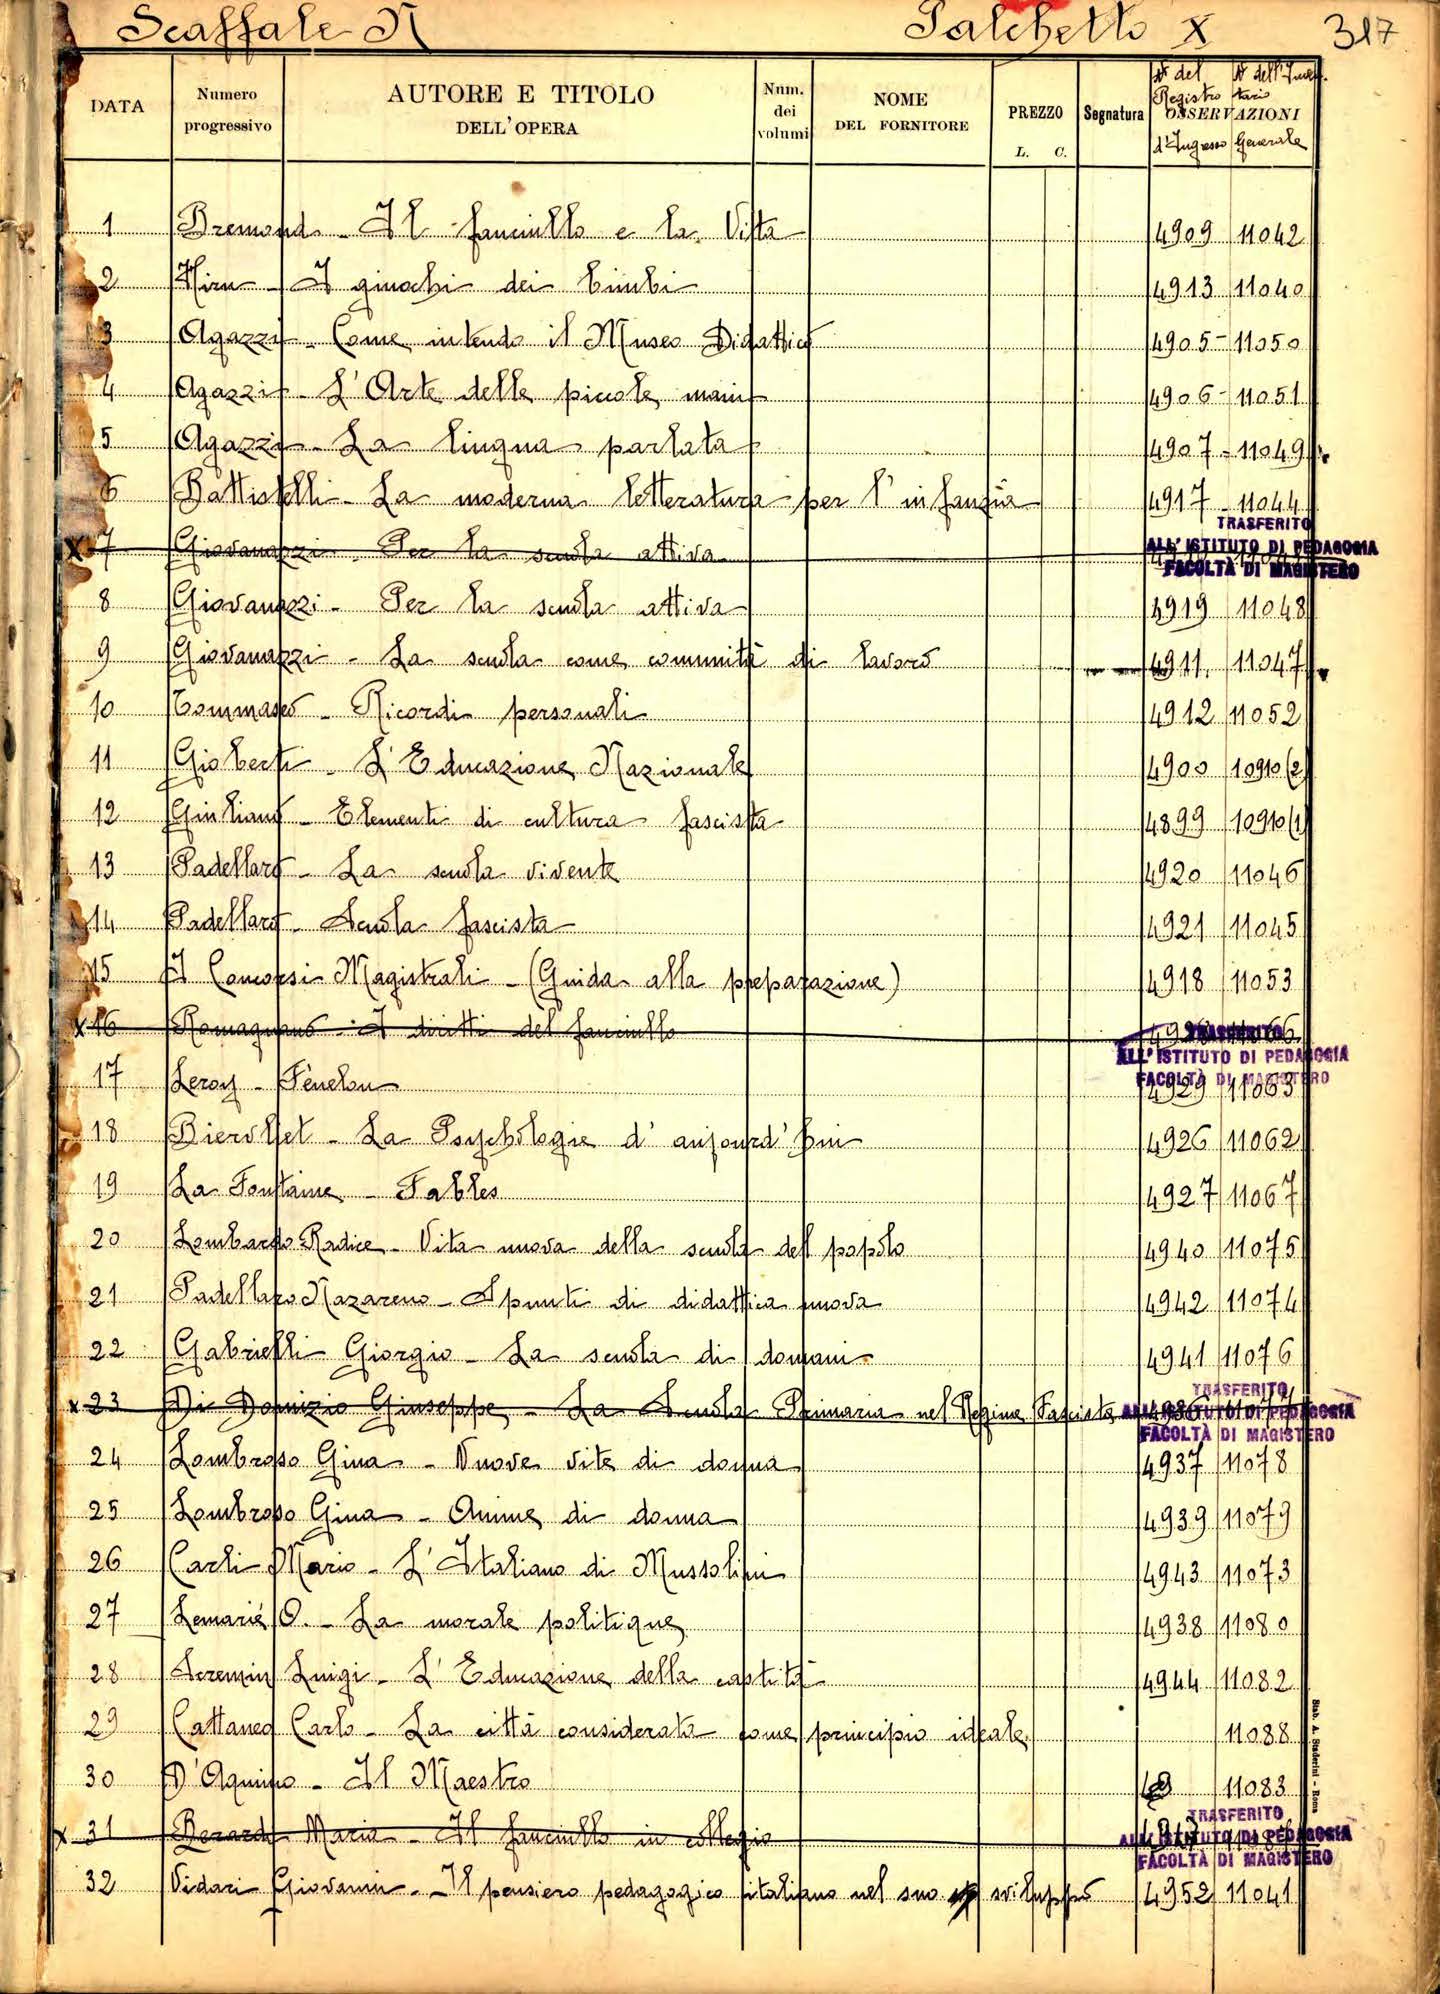 Scaffale N Palchetto X 317
DATA Numero progressivo AUTORE E TITOLO DELL'OPERA Num. dei volumi NOME DEL FORNITORE PREZZO L. C. Segnatura OSSERVAZIONI N° del Registro d'Ingresso N° dell'Inventario Generale
1 Bremond - Il fanciullo e la Vita 4909 11042
2 Hirn - I giuochi dei bimbi 4913 11040
3 Agazzi - Come intendo il Museo Didattico 4905 - 11050
4 Agazzi - L'Arte delle piccole mani 4906 - 11051
5 Agazzi - La lingua parlata 4907 - 11049
6 Battistelli - La moderna letteratura per l'infanzia 4917 - 11044
x 7 Giovanazzi - Per la scuola attiva
TRASFERITO
ALL'ISTITUTO DI PEDAGOGIA
FACOLTÀ DI MAGISTERO
8 Giovanazzi - Per la scuola attiva 4919 11048
9 Giovanazzi - La scuola come comunità di lavoro 4911 11047
10 Tommaseo - Ricordi personali 4912 11052
11 Gioberti - L'Educazione Nazionale 4900 10910(2)
12 Giuliano - Elementi di cultura fascista 4899 10910(1)
13 Padellaro - La scuola vivente 4920 11046
14 Padellaro - Scuola fascista 4921 11045
15 I Concorsi Magistrali - (Guida alla preparazione) 4918 11053
x 16 Romagnano - I diritti del fanciullo
TRASFERITO
ALL'ISTITUTO DI PEDAGOGIA
FACOLTÀ DI MAGISTERO
17 Leroy - Fènelon 4929 11063
18 Biervliet - La Psychologie d'aujourd'hui 4926 11062
19 La Fontaine - Fables 4927 11067
20 Lombardo Radice - Vita nuova della scuola del popolo 4940 11075
21 Padellaro Nazareno - Spunti di didattica nuova 4942 11074
22 Gabrielli Giorgio - La scuola di domani 4941 11076
x 23 Di Domizio Giuseppe - La Scuola Primaria nel Regime Fascista
TRASFERITO
ALL'ISTITUTO DI PEDAGOGIA
FACOLTÀ DI MAGISTERO
24 Lombroso Gina - Nuove vite di donna 4937 11078
25 Lombroso Gina - Anime di donna 4939 11079
26 Carli Mario - L'Italiano di Mussolini 4943 11073
27 Lemarié O. - La morale politique 4938 11080
28 Scremin Luigi - L'Educazione della castità 4944 11082
29 Cattaneo Carlo - La città considerata come principio ideale 11088
30 D'Aquino - Il Maestro 11083
x 31 Berardi Maria - Il fanciullo in collegio
TRASFERITO
ALL'ISTITUTO DI PEDAGOGIA
FACOLTÀ DI MAGISTERO
32 Vidari Giovanni - Il pensiero pedagogico italiano nel suo sviluppo 4952 11041
Stab. A. Staderini - Roma